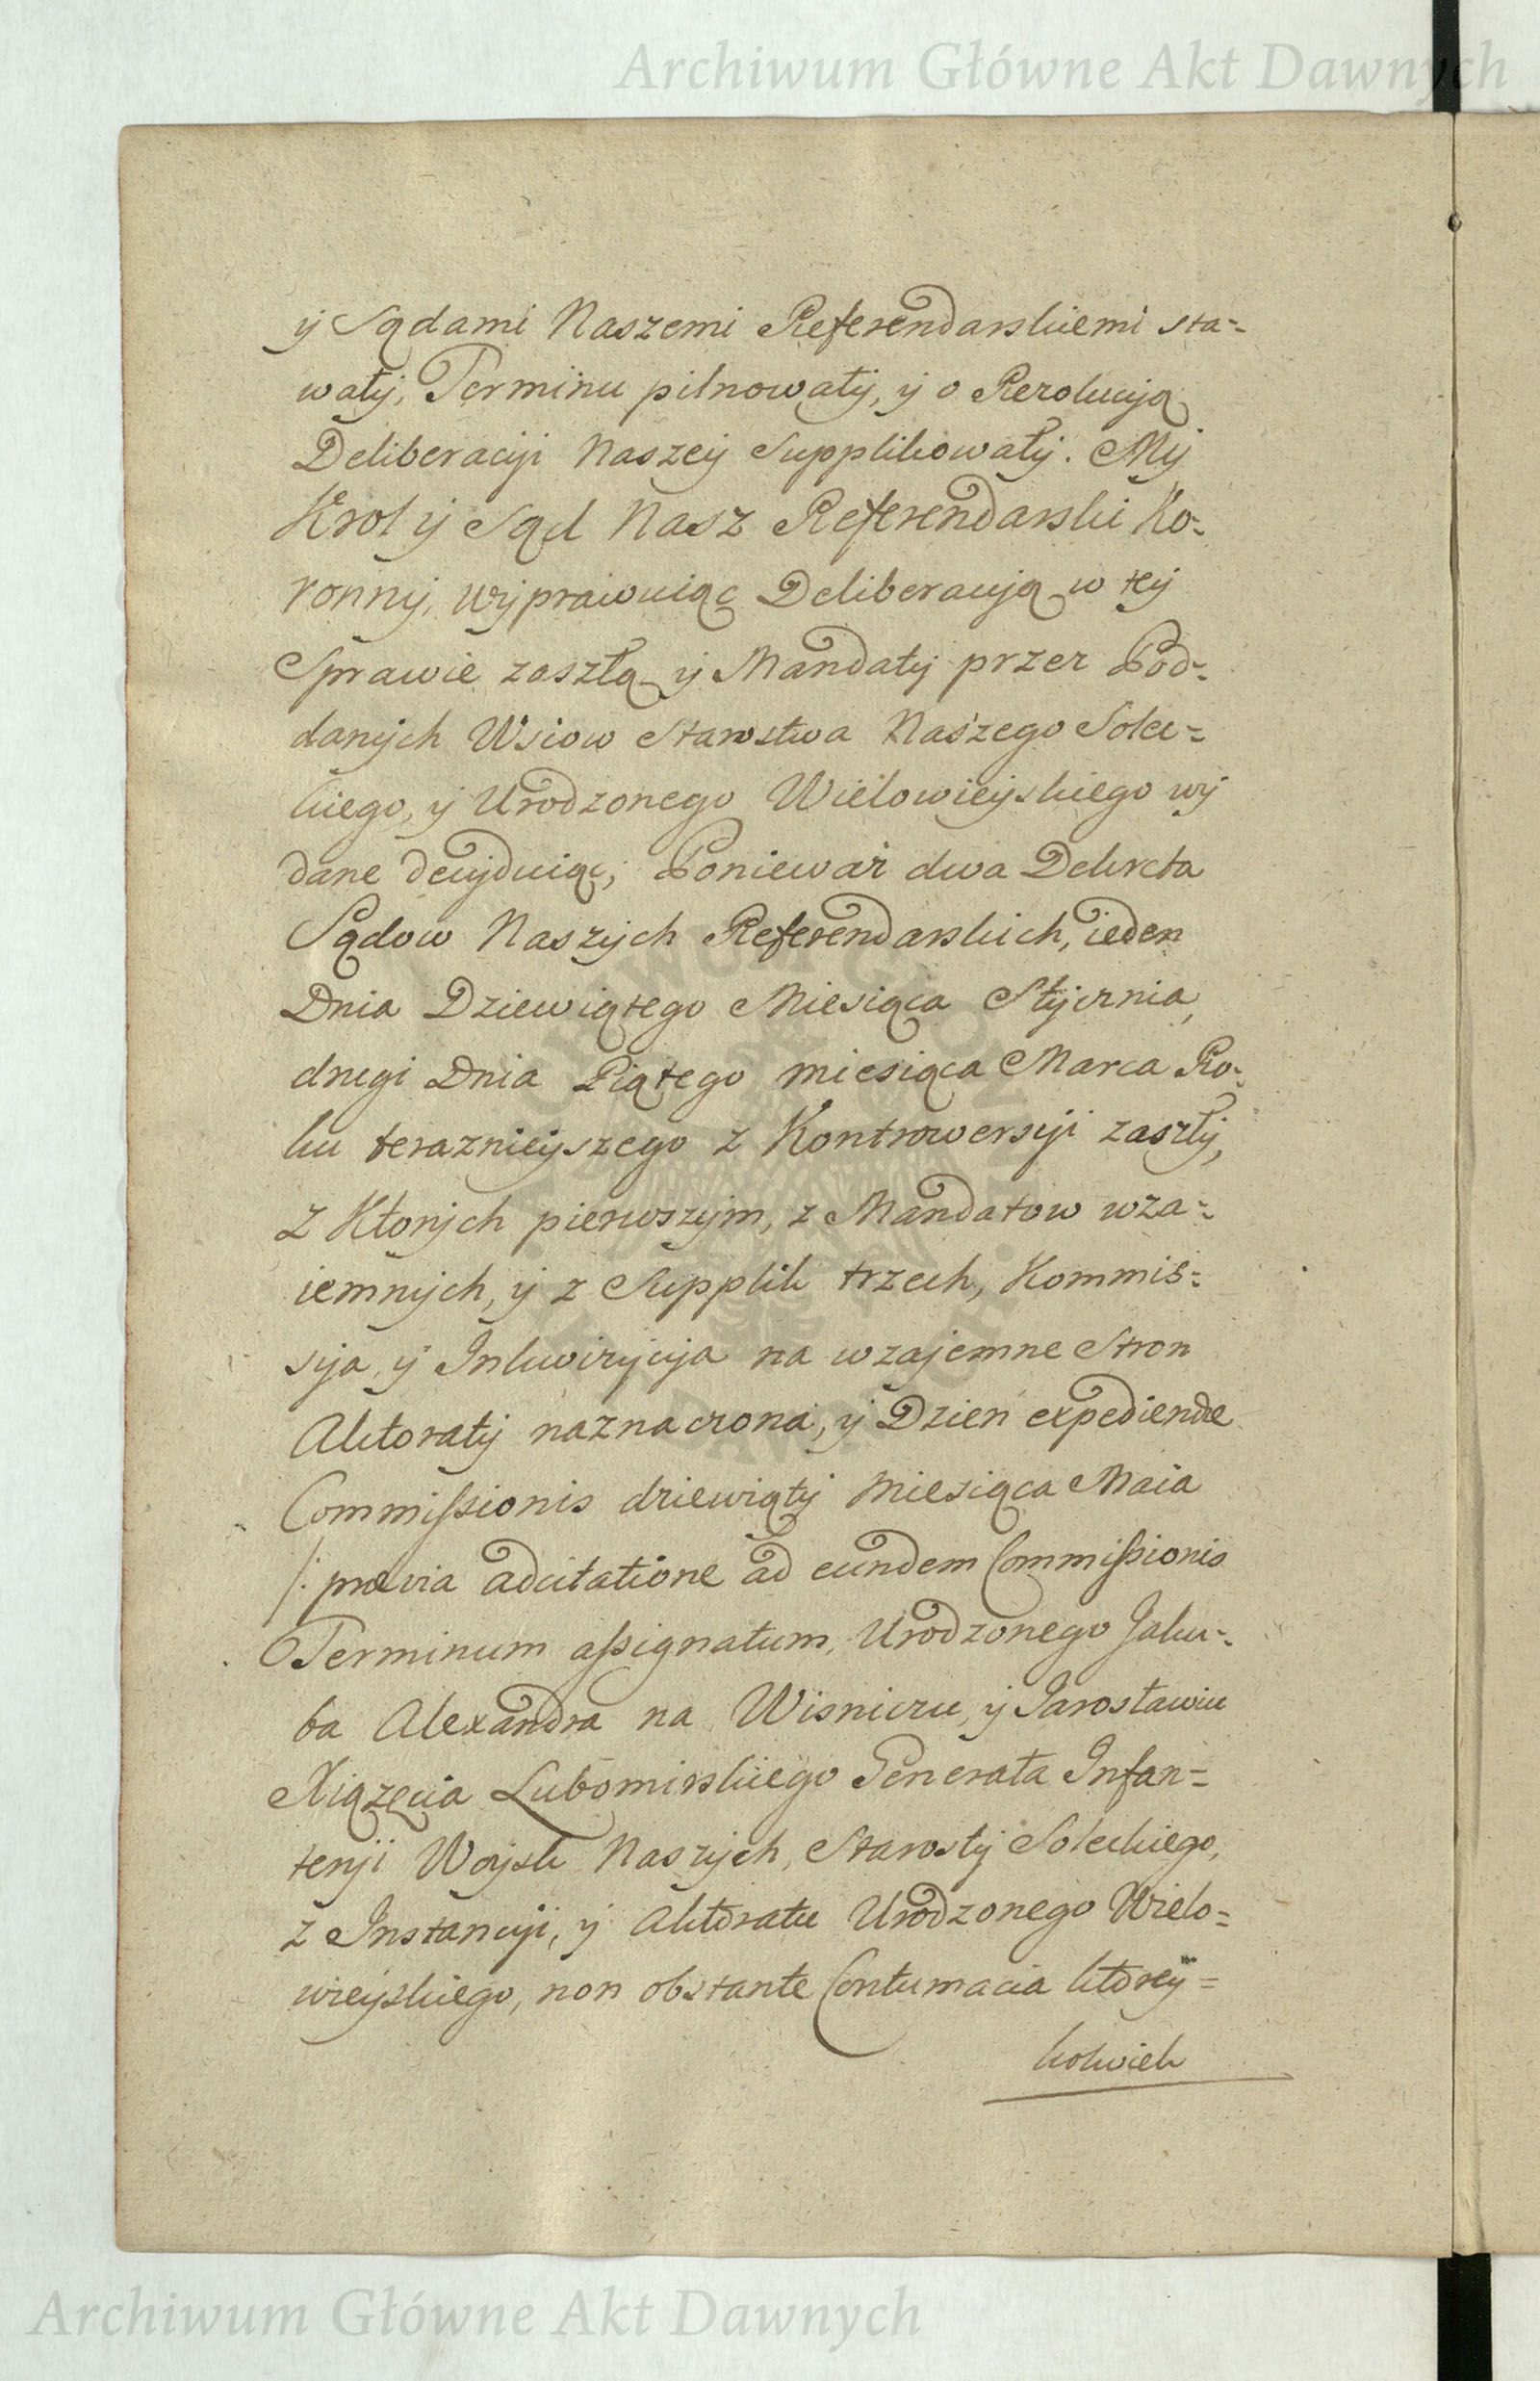 Archiwum Główne Akt Dawnych
ÿ Sądami Naszemi Referendarskiemi sta-
wałÿ, Terminu pilnowałÿ, ÿ o Rezolucÿą
Deliberacÿi Naszeÿ Supplikowałÿ. Mÿ
Krol ÿ Sąd Nasz Referendarski Ko-
ronnÿ, wÿprawuiąc Deliberacÿą w teÿ
Sprawie zaszłą ÿ Mandatÿ przez Pod-
danÿch Wsiow Starostwa Naszego Solec-
kiego, ÿ Urodzonego Wielowieÿskiego wÿ
dane decÿduiąc; Ponieważ dwa Dekreta
Sądow Naszÿch Referendarskich, ieden
Dnia Dziewiątego Miesiąca Stÿcznia,
drugi Dnia Piątego miesiąca Marca Ro-
ku teraznieÿszego z Kontrowersÿi zaszłÿ,
z Ktorÿch pierwszÿm, z Mandatow wza-
iemnÿch, ÿ z Supplik trzech, Kommis-
sÿa, ÿ Inkwizÿcÿa na wzajemne Stron
Aktoratÿ naznaczona, ÿ Dzień expediendæ
Commissionis dziewiątÿ Miesiąca Maia
/: prævia adcitatione ad eundem Commissionis
Terminum assignatum, Urodzonego Jaku-
ba Alexandra na Wisniczu, ÿ Jarosławiu
Xiążęcia Lubomirskiego Generała Infan-
terÿi Woÿsk Naszÿch, Starostÿ Soleckiego,
z Instancÿi, ÿ Aktoratu Urodzonego Wielo-
wieÿskiego, non obstante Contumacia ktoreÿ-
kolwiek
Archiwum Główne Akt Dawnych